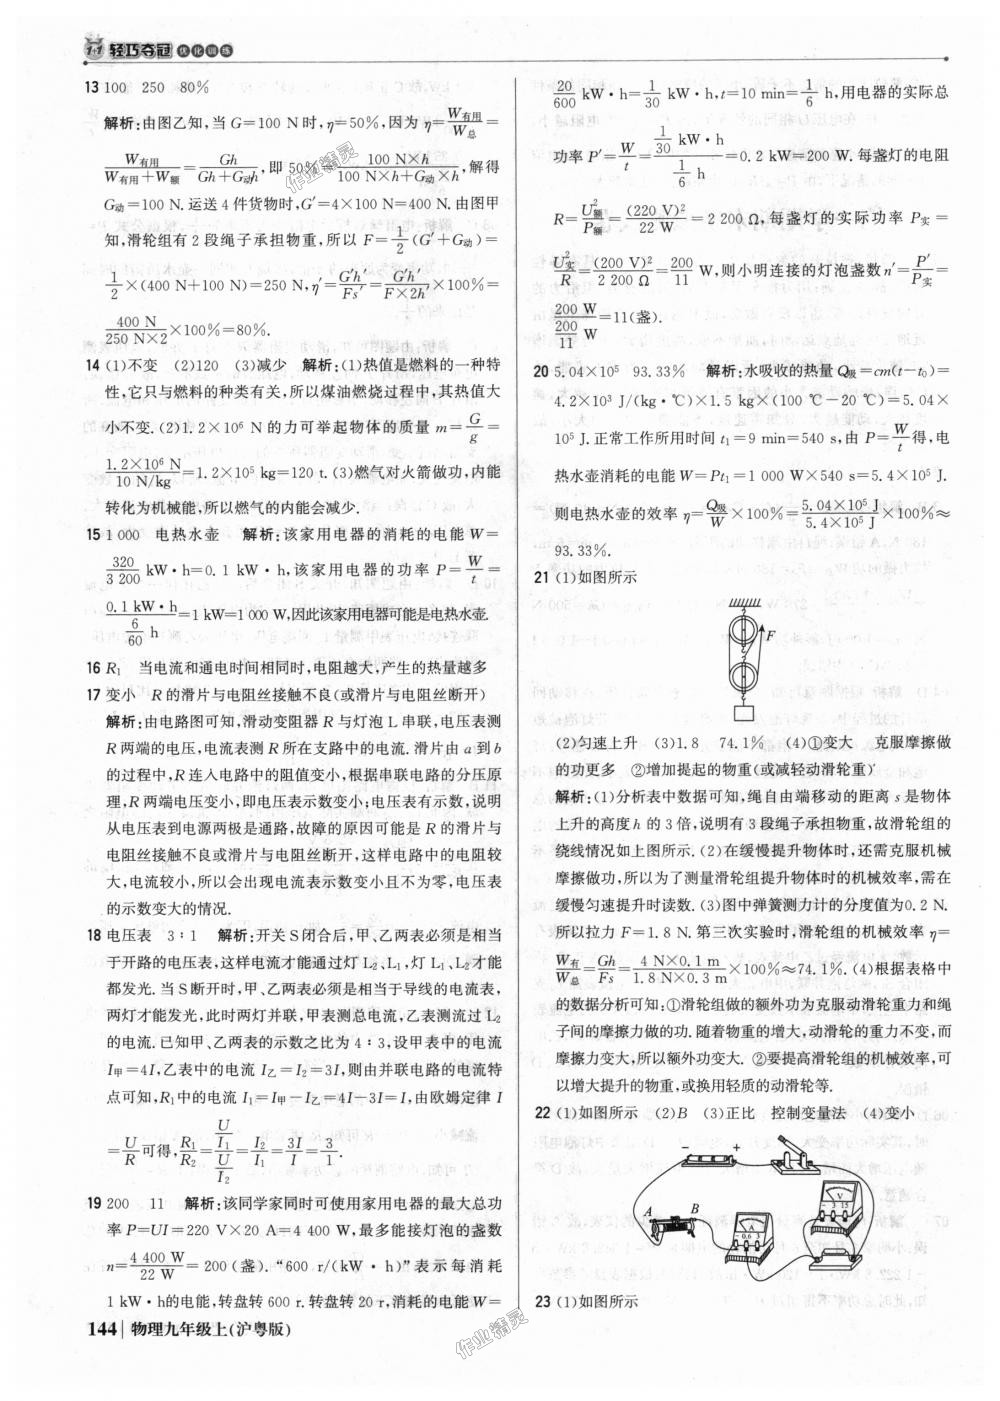 1+1 轻巧夺冠 优化训练
13 100 250 80%
解析:由图乙知,当 G=100 N时,η=50%,因为 η=W有用/W总=
W有用/(W有用+W额)=Gh/(Gh+G动h),即 50%=100 N×h/(100 N×h+G动×h),解得
G动=100 N. 运送 4 件货物时,G′=4×100 N=400 N. 由图甲
知,滑轮组有 2 段绳子承担物重,所以 F=1/2(G′+G动)=
1/2×(400 N+100 N)=250 N,η′=G′h′/Fs′=G′h′/(F×2h′)×100%=
400 N/(250 N×2)×100%=80%.
14 (1)不变 (2)120 (3)减少 解析:(1)热值是燃料的一种特
性,它只与燃料的种类有关,所以煤油燃烧过程中,其热值大
小不变.(2)1.2×10⁶ N 的力可举起物体的质量 m=G/g=
1.2×10⁶ N/10 N/kg=1.2×10⁵ kg=120 t.(3)燃气对火箭做功,内能
转化为机械能,所以燃气的内能会减少.
15 1 000 电热水壶 解析:该家用电器的消耗的电能 W=
320/3 200 kW·h=0.1 kW·h,该家用电器的功率 P=W/t=
0.1 kW·h/(6/60 h)=1 kW=1 000 W,因此该家用电器可能是电热水壶.
16 R₁ 当电流和通电时间相同时,电阻越大,产生的热量越多
17 变小 R 的滑片与电阻丝接触不良(或滑片与电阻丝断开)
解析:由电路图可知,滑动变阻器 R 与灯泡 L 串联,电压表测
R 两端的电压,电流表测 R 所在支路中的电流. 滑片由 a 到 b
的过程中,R 连入电路中的阻值变小,根据串联电路的分压原
理,R 两端电压变小,即电压表示数变小;电压表有示数,说明
从电压表到电源两极是通路,故障的原因可能是 R 的滑片与
电阻丝接触不良或滑片与电阻丝断开,这样电路中的电阻较
大,电流较小,所以会出现电流表示数变小且不为零,电压表
的示数变大的情况.
18 电压表 3∶1 解析:开关 S 闭合后,甲、乙两表必须是相当
于开路的电压表,这样电流才能通过灯 L₂、L₁,灯 L₁、L₂ 才能
都发光. 当 S 断开时,甲、乙两表必须是相当于导线的电流表,
两灯才能发光,此时两灯并联,甲表测总电流,乙表测流过 L₂
的电流. 已知甲、乙两表的示数之比为 4∶3,设甲表中的电流
I甲=4I,乙表中的电流 I乙=I₂=3I,则由并联电路的电流特
点可知,R₁中的电流 I₁=I甲-I乙=4I-3I=I,由欧姆定律 I
=U/R可得,R₁/R₂=(U/I₁)/(U/I₂)=I₂/I₁=3I/I=3/1.
19 200 11 解析:该同学家同时可使用家用电器的最大总功
率 P=UI=220 V×20 A=4 400 W,最多能接灯泡的盏数
n=4 400 W/22 W=200(盏). “600 r/(kW·h)”表示每消耗
1 kW·h的电能,转盘转 600 r. 转盘转 20 r,消耗的电能 W=
144 物理九年级上(沪粤版)
20/600 kW·h=1/30 kW·h,t=10 min=1/6 h,用电器的实际总
功率 P′=W/t=(1/30 kW·h)/(1/6 h)=0.2 kW=200 W. 每盏灯的电阻
R=U额²/P额=(220 V)²/22 W=2 200 Ω,每盏灯的实际功率 P实=
U实²/R=(200 V)²/2 200 Ω=200/11 W,则小明连接的灯泡盏数n′=P′/P实=
200 W/(200/11 W)=11(盏).
20 5.04×10⁵ 93.33% 解析:水吸收的热量 Q吸=cm(t-t₀)=
4.2×10³ J/(kg·℃)×1.5 kg×(100 ℃-20 ℃)=5.04×
10⁵ J. 正常工作所用时间 t₁=9 min=540 s,由 P=W/t得,电
热水壶消耗的电能 W=Pt₁=1 000 W×540 s=5.4×10⁵ J.
则电热水壶的效率 η=Q吸/W×100%=5.04×10⁵ J/5.4×10⁵ J×100%≈
93.33%.
21 (1)如图所示
F
(2)匀速上升 (3)1.8 74.1% (4)①变大 克服摩擦做
的功更多 ②增加提起的物重(或减轻动滑轮重)
解析:(1)分析表中数据可知,绳自由端移动的距离 s 是物体
上升的高度 h 的 3 倍,说明有 3 段绳子承担物重,故滑轮组的
绕线情况如上图所示.(2)在缓慢提升物体时,还需克服机械
摩擦做功,所以为了测量滑轮组提升物体时的机械效率,需在
缓慢匀速提升时读数.(3)图中弹簧测力计的分度值为0.2 N.
所以拉力 F=1.8 N. 第三次实验时,滑轮组的机械效率 η=
W有/W总=Gh/Fs=4 N×0.1 m/1.8 N×0.3 m×100%≈74.1%.(4)根据表格中
的数据分析可知:①滑轮组做的额外功为克服动滑轮重力和绳
子间的摩擦力做的功. 随着物重的增大,动滑轮的重力不变,而
摩擦力变大,所以额外功变大. ②要提高滑轮组的机械效率,可
以增大提升的物重,或换用轻质的动滑轮等.
22 (1)如图所示 (2)B (3)正比 控制变量法 (4)变小
- +
A B
A
-0.6 3
V
- 3 15
23 (1)如图所示
作业精灵
作业精灵